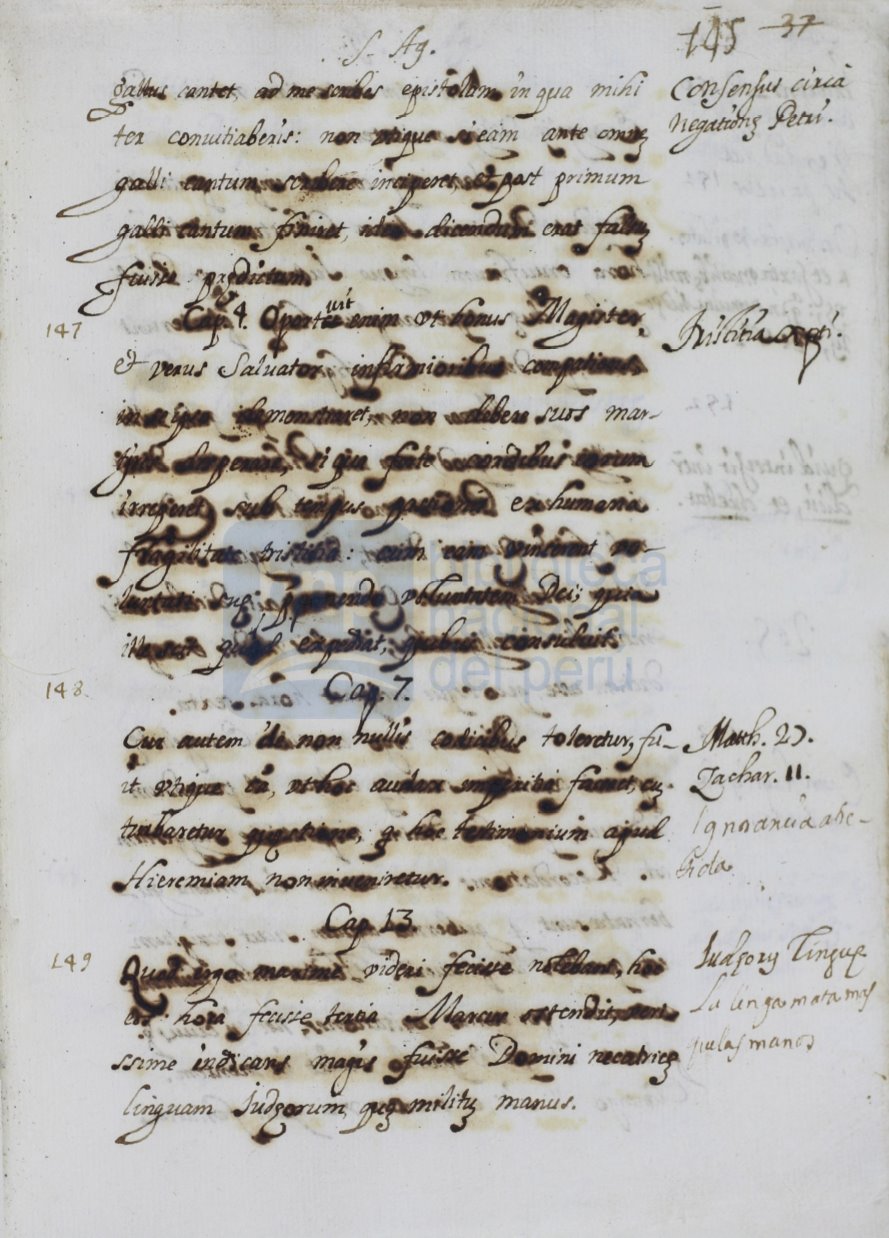 S. Ag.
145 37
gallus cantet, ad me scribes epistolam in qua mihi
ter convitiaberis: non utique si eam ante omnẽ
galli cantum scribere inciperet, et post primum
galli cantum finiret, ideo dicendũ erat falsũ
fuisse prędictum.
Consensus circa
negationẽ Petri.
147
Cap. 4. Oportuit enim vt bonus Magister,
et verus Salvator infirmioribus compatiens,
in se ipso demonstraret, non debere suos mar-
tyres desperare, si qua forte cordibus eorum
irreperet sub tempus passionis ex humana
fragilitate tristitia: cum eam vincerent vo-
luntati suę pponendo voluntatem Dei; quia
ille scit quid expediat, quibus consuluit.
Tristitia xpti.
148
Cap. 7.
Cur autem de non nullis codicibus toleretur, fu-
it vtique ca, vt hoc audax imperitia faceret, cũ
turbaretur quęstione, q hoc testimonium apud
Hieremiam non inveniretur.
Matth. 27.
Zachar. 11.
Ignorancia atre-
bida
149
Cap. 13.
Quod ergo maxime videri fecisse nolebant, hoc
eos hora fecisse tertia Marcus ostendit, veri-
ssime indicans magis fuisse Domini necatricẽ
linguam Iudęorum, quę militũ manus.
Iudęorũ linguę
La lengua mata mas
que las manos
biblioteca
nacional
del perú